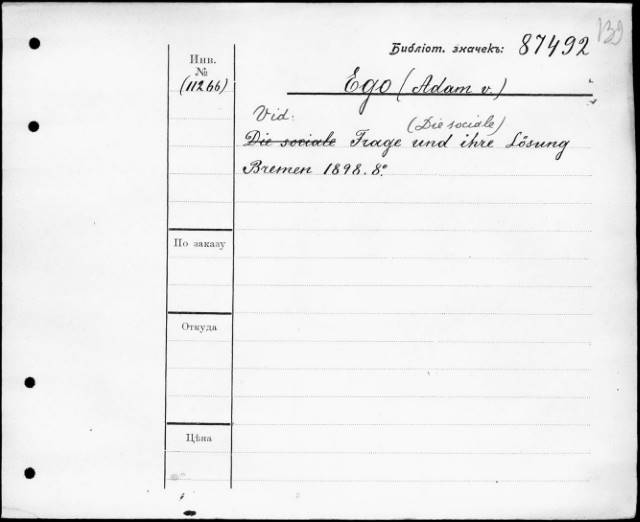 139
Библіот. значекъ: 87492
Инв.
№
(11266)
Ego (Adam v.)
Vid.
(Die sociale)
Die sociale Frage und ihre Lösung
Bremen 1898. 8º
По заказу
Откуда
Цѣна